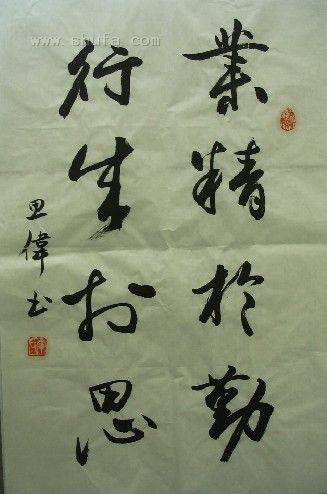 業精於勤
行成於思
思偉书
www.shufa.com